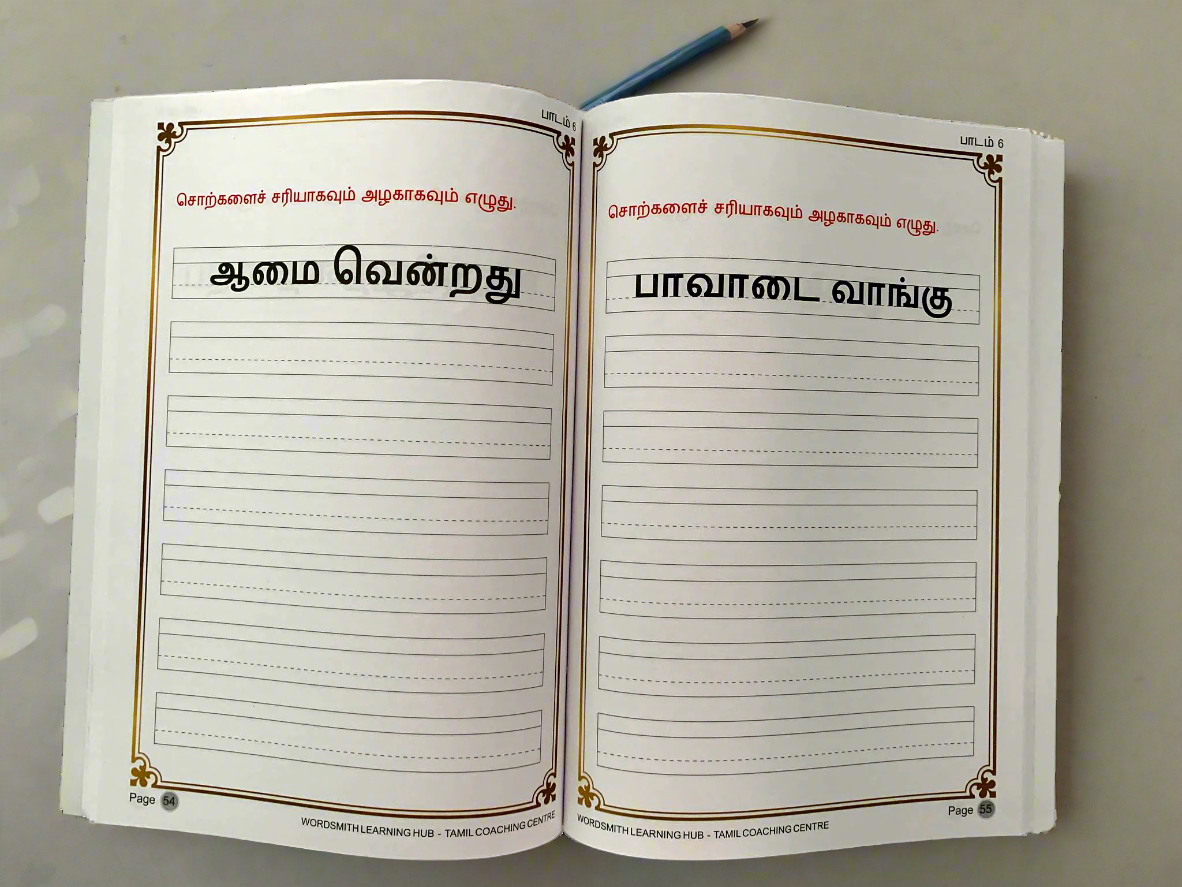 பாடம் 6
சொற்களைச் சரியாகவும் அழகாகவும் எழுது.
ஆமை வென்றது
Page 54
WORDSMITH LEARNING HUB - TAMIL COACHING CENTRE
பாடம் 6
சொற்களைச் சரியாகவும் அழகாகவும் எழுது.
பாவாடை வாங்கு
Page 55
WORDSMITH LEARNING HUB - TAMIL COACHING CENTRE